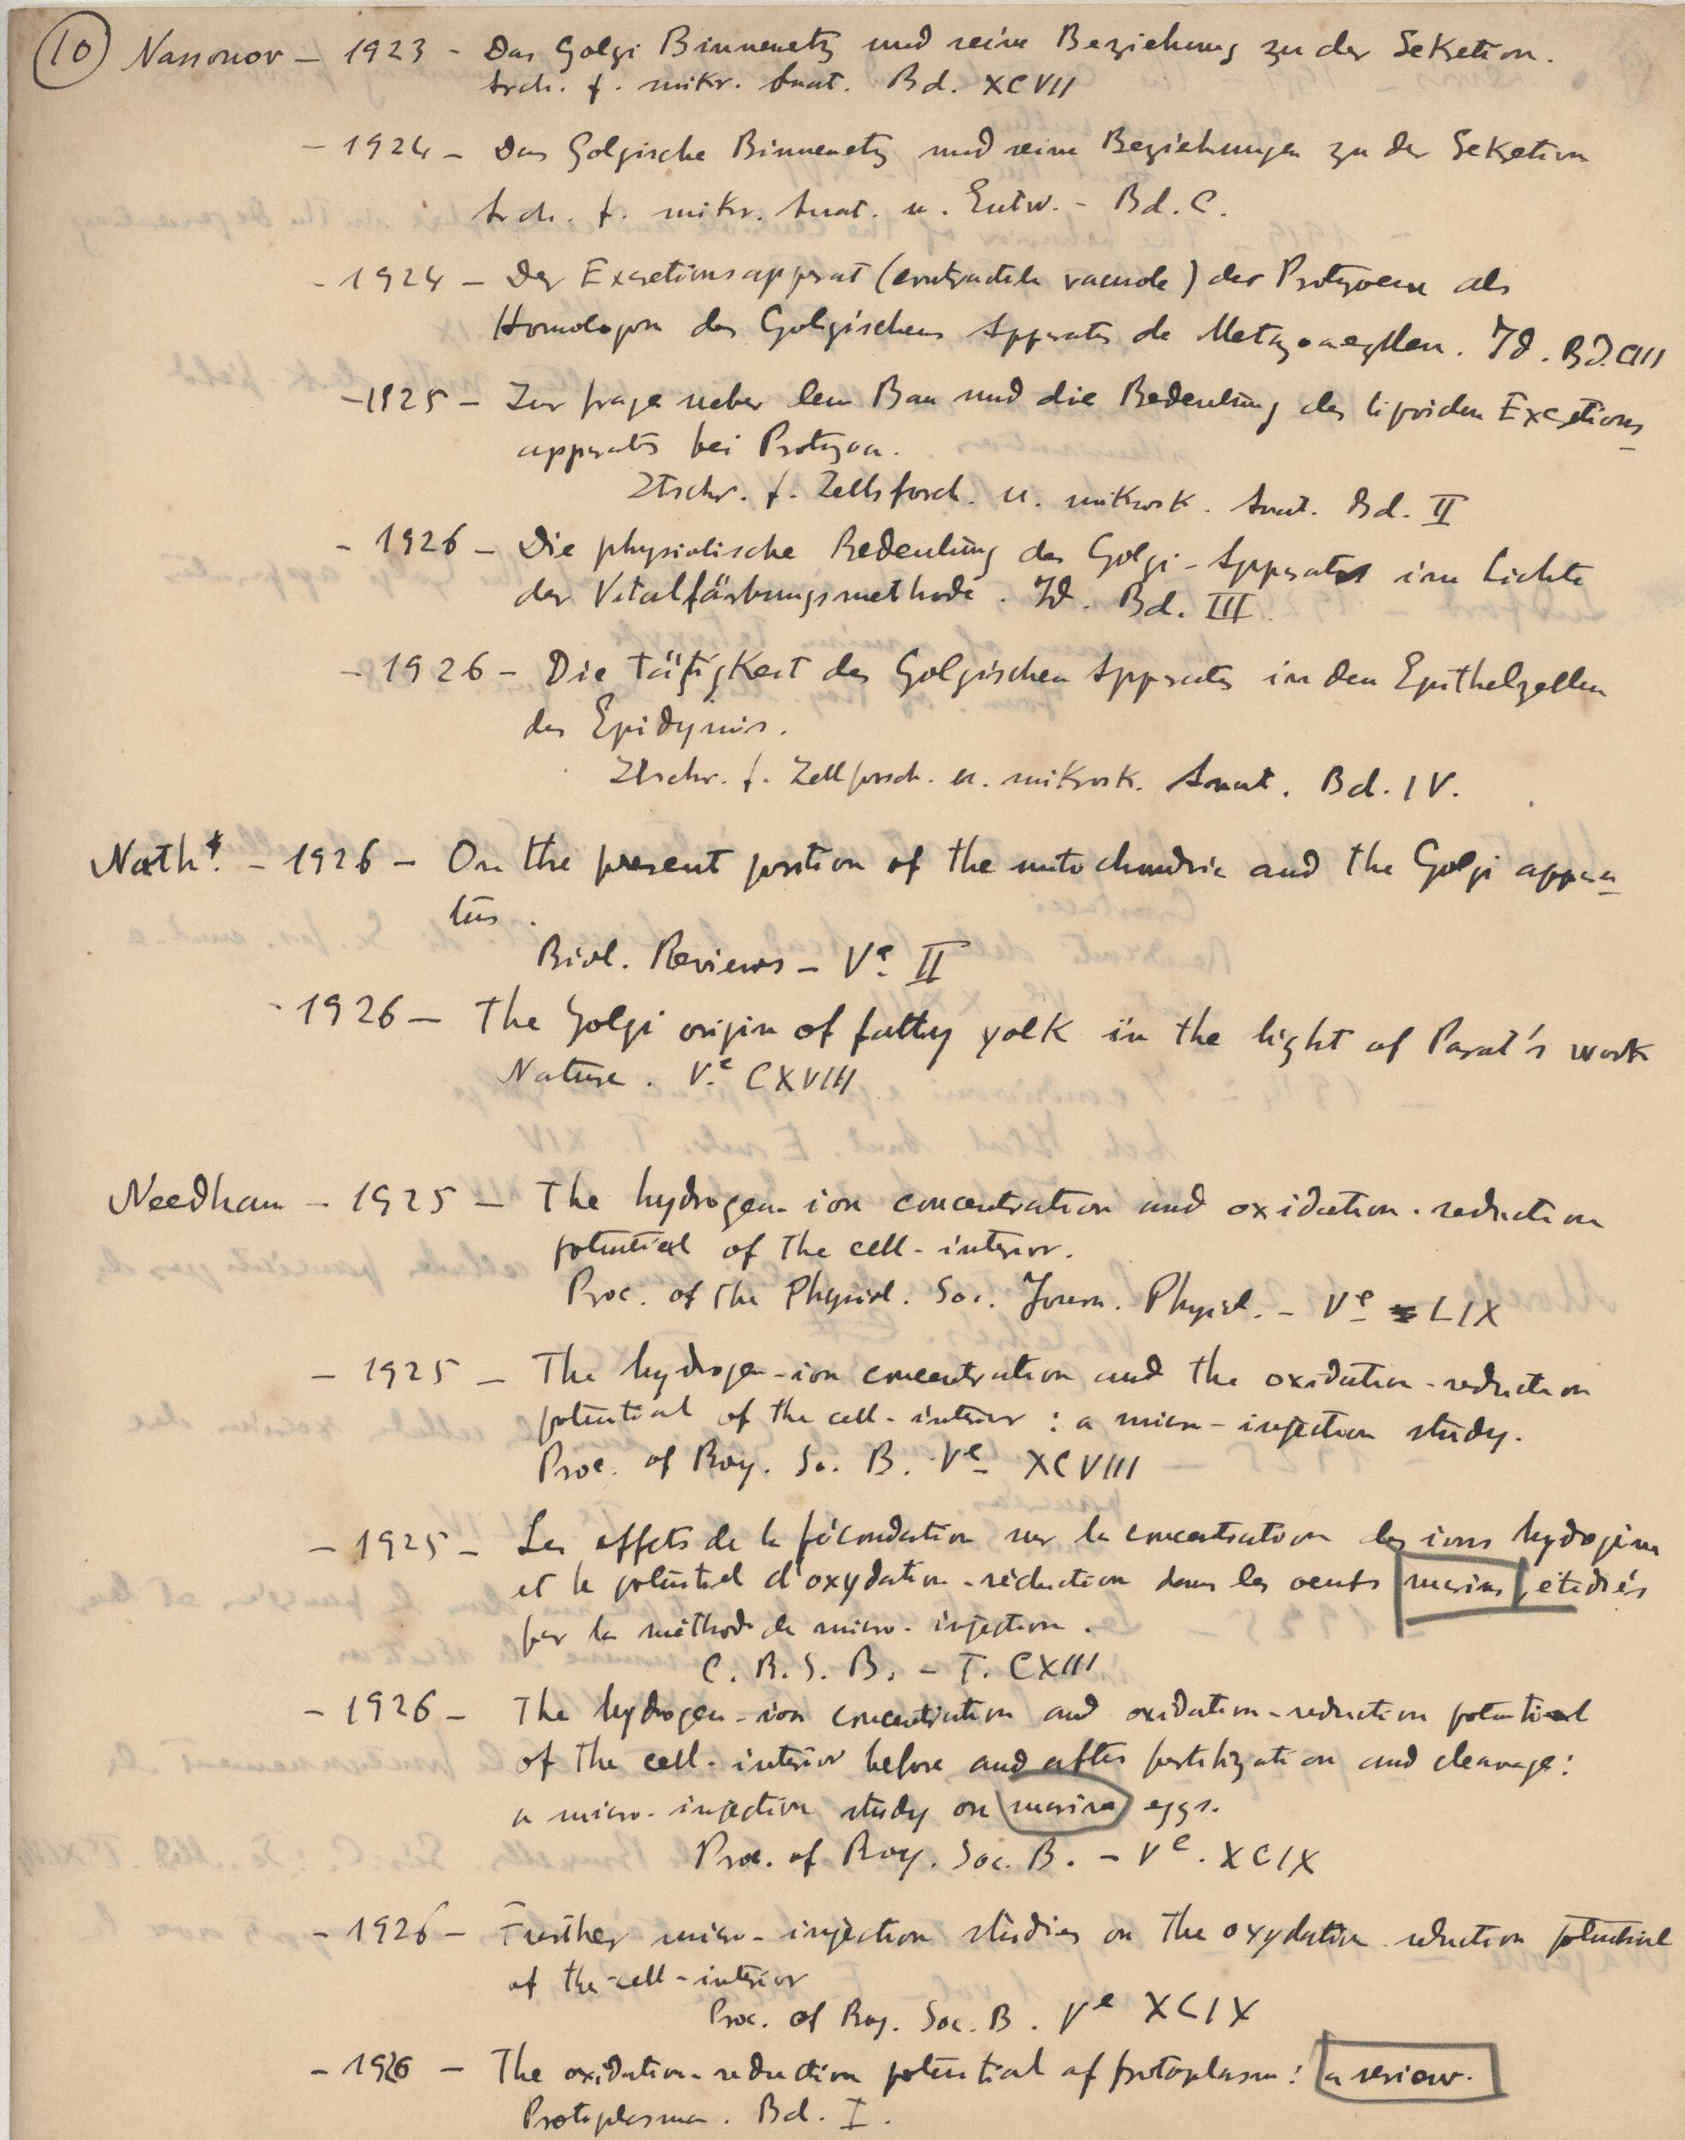 10 Nassonov – 1923 - Das Golgi Binnenetz und seine Beziehung zu der Sekretion.
Arch. f. mikr. Anat. Bd. XCVII
– 1924 – Das Golgische Binnenetz und seine Beziehungen zu der Sekretion
Arch. f. mikr. Anat. u. Entw. - Bd. C.
- 1924 – Der Excretionsapparat (contractile vacuole) der Protozoen als
Homologon des Golgischen Apparats de Metazoenzellen. Id. Bd. CIII
– 1925 – Zur frage ueber den Bau und die Bedeutung des lipoiden Excretions
apparats bei Protozoa.
Ztschr. f. Zellsforsch. u. mikrosk. Anat. Bd. II
- 1926 – Die physiolische Bedeutung des Golgi-Apparats im Lichte
der Vitalfärbungsmethode. Id. Bd. III.
- 1926 – Die Tätigkeit des Golgischen Apparats in den Epithelzellen
des Epidymis.
Ztschr. f. Zellforsch. u. mikrosk. Anat. Bd. IV.
Nath. – 1926 – On the present position of the mitochondria and the Golgi appara
tus.
Biol. Reviews – Ve II
- 1926 – The Golgi origin of fatty yolk in the light of Parat's work
Nature. Ve CXVIII
Needham – 1925 – The hydrogen-ion concentration and oxidation-reduction
potential of the cell-interior.
Proc. of the Physiol. Soc. Journ. Physiol. – Ve LIX
– 1925 – The hydrogen-ion concentration and the oxidation-reduction
potential of the cell-interior : a micro-injection study.
Proc. of Roy. So. B. Ve XCVIII
– 1925 – Les effets de la fécondation sur la concentration des ions hydrogène
et le potentiel d'oxydation-réduction dans les oeufs marins, étudiés
par la méthode de micro-injection.
C. R. S. B. – T. CXIII
– 1926 – The hydrogen-ion concentration and oxidation-reduction potential
of the cell-interior before and after fertilization and cleavage:
a micro-injection study on marine eggs.
Proc. of Roy. Soc. B. – Ve. XCIX
- 1926 – Further micro-injection studies on the oxydation-reduction potential
of the cell-interior
Proc. of Roy. Soc. B. Ve XCIX
– 1926 – The oxidation-reduction potential of protoplasm: a review.
Protoplasma. Bd. I.